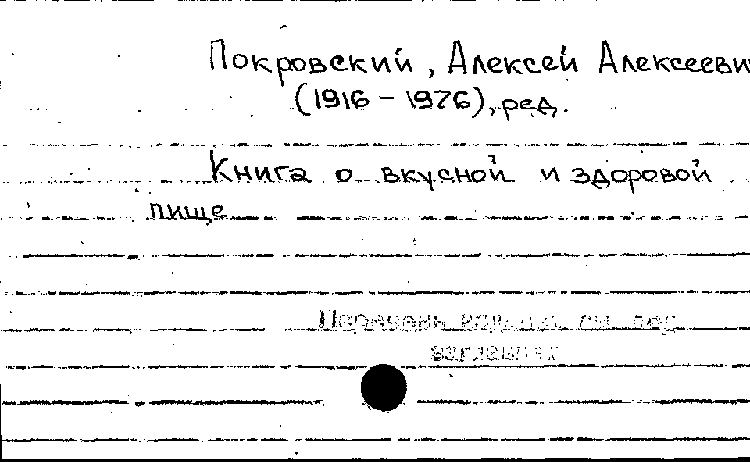 Покровский, Алексей Алексееви
(1916 - 1976), ред.
Книга о вкусной и здоровой
пище
Перечень см. под
заглавием